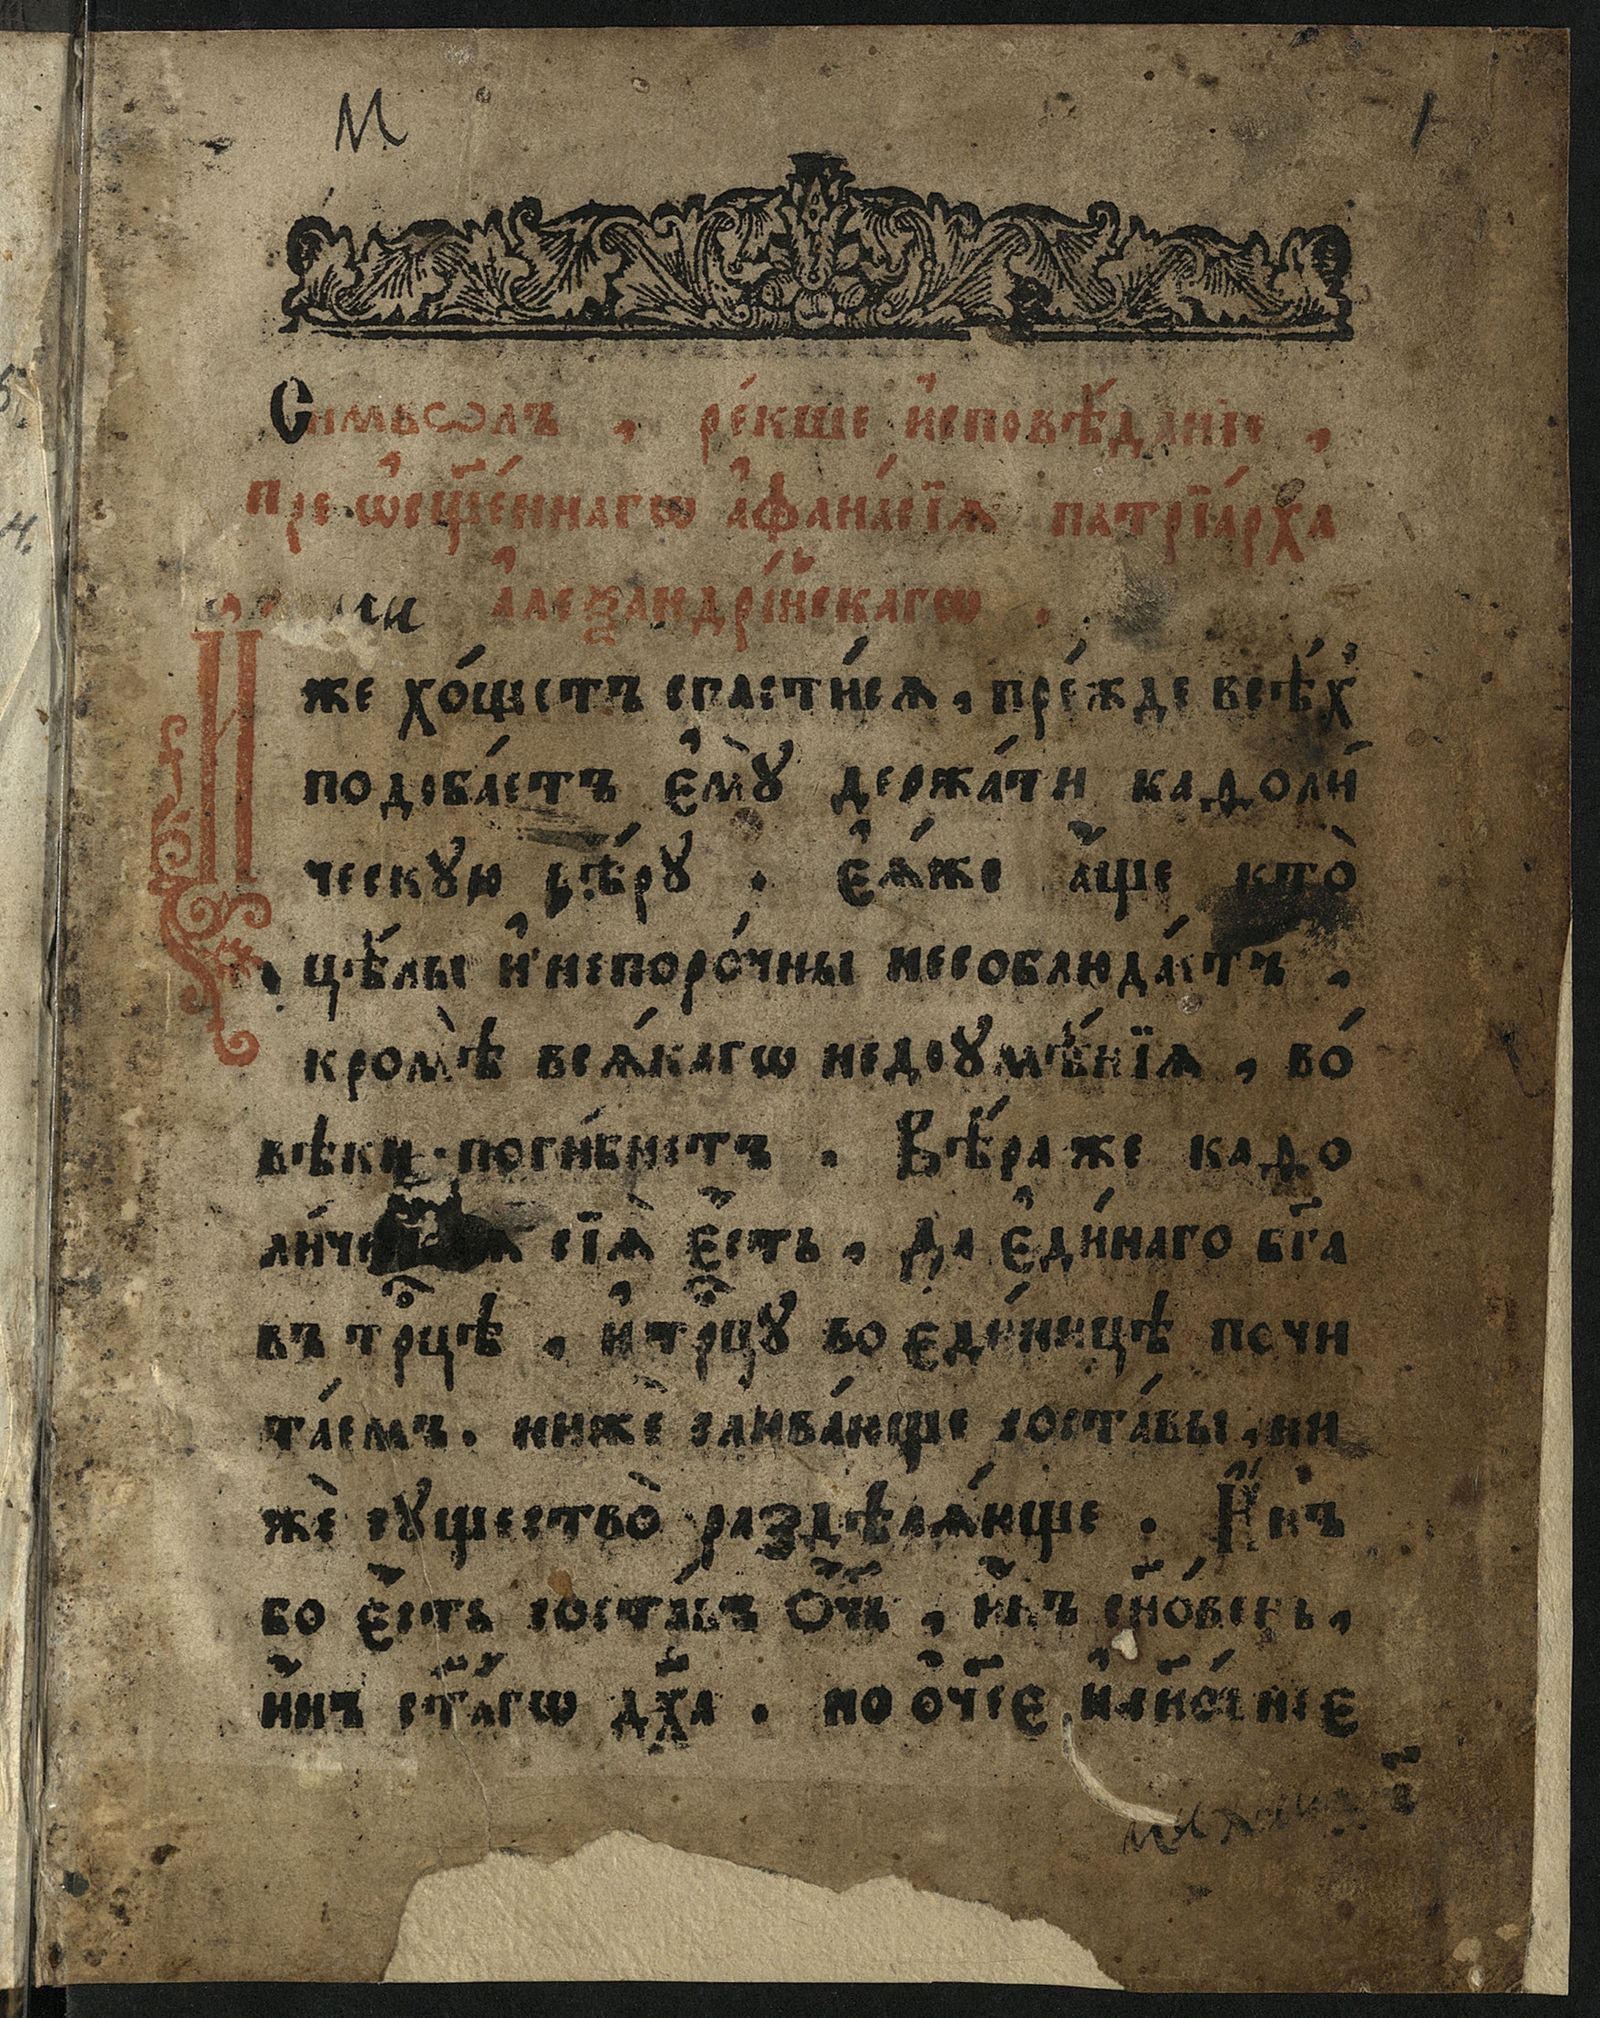 М 1
Симвѡлъ , ре́кше и҆сповѣ́данїе ,
преѡ҆сщ҃е́ннагѡ а҆фана́сїѧ патрїа́рха
а҆леѯандрі́йскагѡ .
Иже хо́щетъ спасти́сѧ , пре́жде всѣ́х
подоба́етъ є҆мꙋ̀ держа́ти кадоли́
ческꙋю вѣ́рꙋ . є҆ѧ́же а҆́ще кто̀
цѣ́лы и҆ непоро́чны несоблюда́етъ ,
кромѣ̀ всѧ́кагѡ недоꙋмѣ́нїѧ , во́
вѣки поги́бнетъ . Вѣ́ра же кадо
ли́че сїѧ̀ є҆́сть , да є҆ди́наго бг҃а
въ трⷪ҇цѣ , и҆ трⷪ҇цꙋ во є҆ди́ницѣ почи
та́емъ . нижѐ слива́юще соста́вы , ни
жѐ сꙋщество̀ раздѣлѧ́юще . И҆́нъ
бо є҆́сть соста́въ Ѻ҆ч҃ь , и҆́нъ сн҃о́вень ,
и҆́нъ ст҃а́гѡ дх҃а . но ѻ҆ч҃еє и҆ сн҃о́внеє